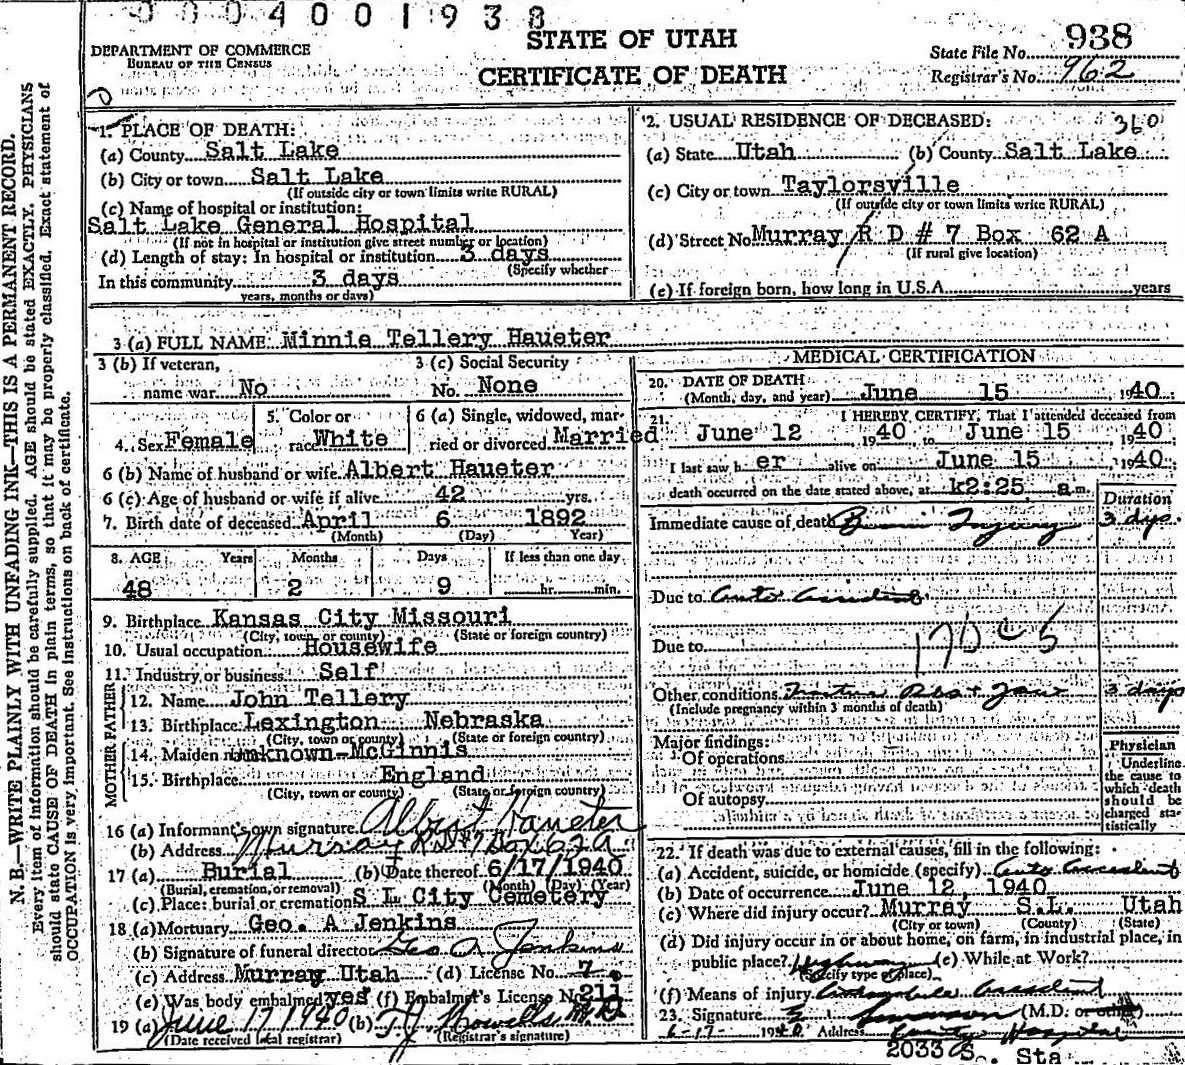 0004001938
STATE OF UTAH
CERTIFICATE OF DEATH
DEPARTMENT OF COMMERCE
BUREAU OF THE CENSUS
State File No. 938
Registrar's No. 962
N. B.—WRITE PLAINLY WITH UNFADING INK—THIS IS A PERMANENT RECORD.
Every item of information should be carefully supplied. AGE should be stated EXACTLY. PHYSICIANS
should state CAUSE OF DEATH in plain terms, so that it may be properly classified. Exact statement of
OCCUPATION is very important. See instructions on back of certificate.
1. PLACE OF DEATH:
(a) County Salt Lake
(b) City or town Salt Lake
(If outside city or town limits write RURAL)
(c) Name of hospital or institution:
Salt Lake General Hospital
(If not in hospital or institution give street number or location)
(d) Length of stay: In hospital or institution 3 days
(Specify whether
In this community 3 days
years, months or days)
2. USUAL RESIDENCE OF DECEASED: 360
(a) State Utah (b) County Salt Lake
(c) City or town Taylorsville
(If outside city or town limits write RURAL)
(d) Street No. Murray R D # 7 Box 62 A
(If rural give location)
(e) If foreign born, how long in U.S.A. years
3 (a) FULL NAME: Minnie Tellery Haueter
3 (b) If veteran,
name war No
3 (c) Social Security
No. None
4. Sex Female
5. Color or
race White
6 (a) Single, widowed, mar-
ried or divorced Married
6 (b) Name of husband or wife Albert Haueter
6 (c) Age of husband or wife if alive 42 yrs.
7. Birth date of deceased April 6 1892
(Month) (Day) Year)
8. AGE Years Months Days If less than one day
48 2 9 hr. min.
9. Birthplace Kansas City Missouri
(City, town or county) (State or foreign country)
10. Usual occupation Housewife
11. Industry or business Self
FATHER
12. Name John Tellery
13. Birthplace Lexington Nebraska
(City, town or county) (State or foreign country)
MOTHER
14. Maiden name Unknown-McGinnis
15. Birthplace England
(City, town or county) (State or foreign country)
16 (a) Informant's own signature Albert Haueter
(b) Address Murray R D #7 Box 62 A
17 (a) Burial (b) Date thereof 6/17/1940
(Burial, cremation, or removal) (Month) (Day) (Year)
(c) Place: burial or cremation S L City Cemetery
18 (a) Mortuary Geo. A Jenkins
(b) Signature of funeral director Geo A Jenkins
(c) Address Murray Utah (d) License No. 7
(e) Was body embalmed yes (f) Embalmer's License No. 211
19 (a) June 17 1940 (b) T J Howells M.D.
(Date received local registrar) (Registrar's signature)
MEDICAL CERTIFICATION
20. DATE OF DEATH
(Month, day, and year) June 15 1940
21. I HEREBY CERTIFY, That I attended deceased from
June 12, 1940 to June 15 1940
I last saw her alive on June 15 1940
death occurred on the date stated above, at k2:25 a.m.
Duration
Immediate cause of death Brain Injury 3 dys.
Due to auto accident
Due to 170 c-5
Other conditions Fracture Ribs + Jaw 3 days
(Include pregnancy within 3 months of death)
Major findings:
Of operations
Of autopsy
Physician
Underline
the cause to
which death
should be
charged sta-
tistically
22. If death was due to external causes, fill in the following:
(a) Accident, suicide, or homicide (specify) Auto Accident
(b) Date of occurrence June 12, 1940
(c) Where did injury occur? Murray S.L. Utah
(City or town) (County) (State)
(d) Did injury occur in or about home, on farm, in industrial place, in
public place? Highway (e) While at Work?
(Specify type of place)
(f) Means of injury Automobile Accident
23. Signature (M.D. or other)
6-17- 1940 Address County Hospital
2033 S. Sta